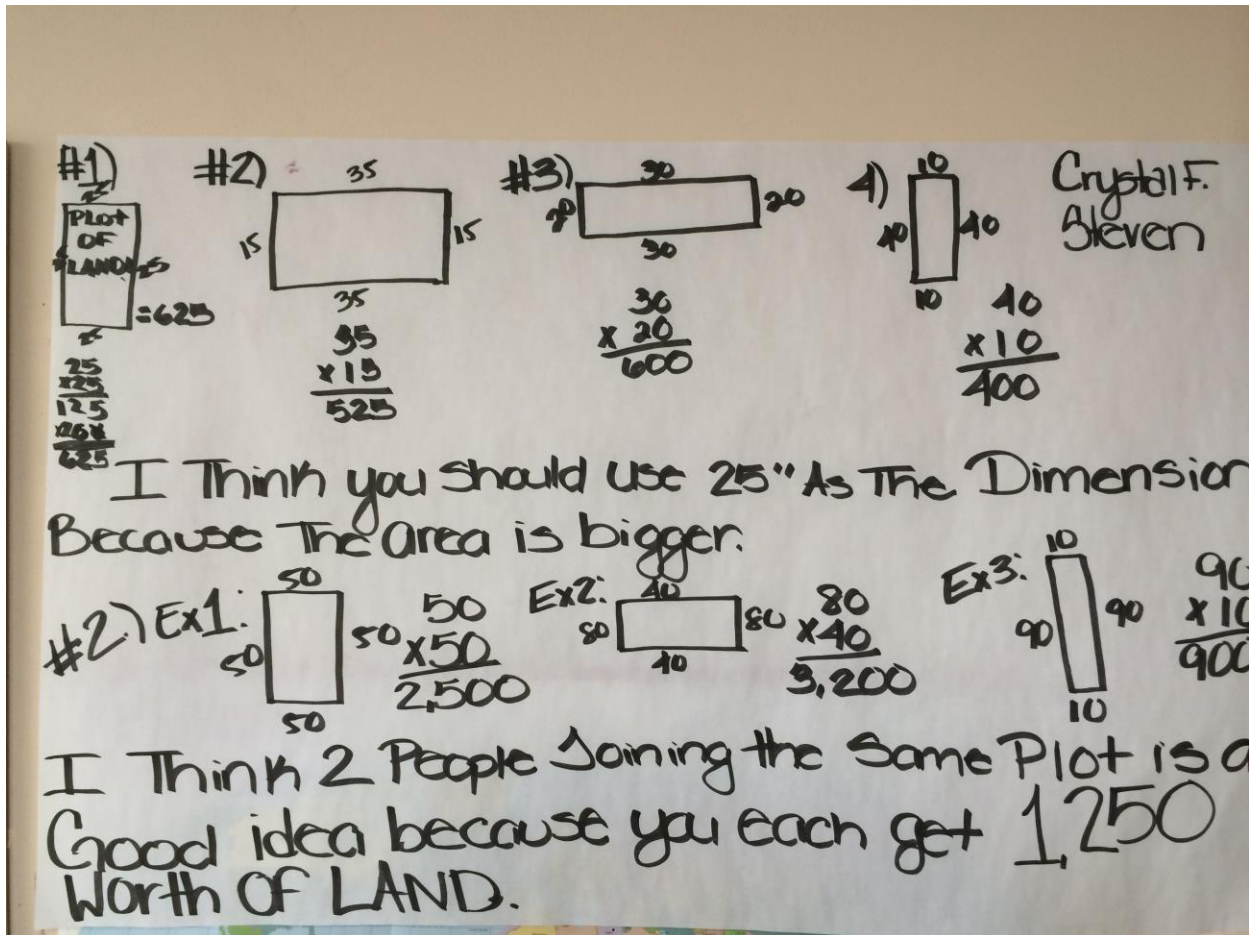 #1) #2) #3) 4) Crystal F.
Steven
25
PLOT
OF
LAND 25
=625
25
25
x25
125
625
35
15 15
35
35
x 15
525
30
20 20
30
30
x 20
600
10
40 40
10
40
x 10
400
I Think you should use 25" As The Dimension
Because The area is bigger.
#2.) Ex1:
50
50 50
50
50
x50
2,500
Ex2:
40
80 80
40
80
x40
3,200
Ex3:
10
90 90
10
90
x 10
900
I Think 2 People Joining the Same Plot is a
Good idea because you each get 1,250
Worth OF LAND.